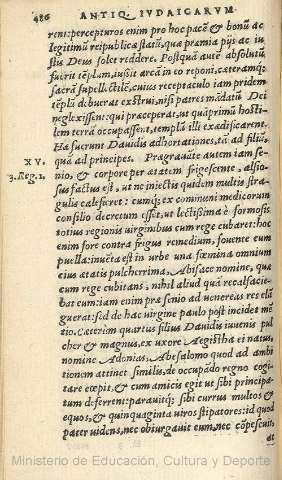 486 ANTIQ. IVDAICARVM
rent: percepturos enim pro hoc pacē & bonū ac
legitimū reipublicæ statū, quæ præmia pijs ac iu
stis Deus solet reddere. Postquā autē absolutū
fuerit tēplum, iussit arcā in eo reponi, cæteramq́;
sacrā supellectilē, cuius receptaculo iam pridem
tēplū debuerat exstrui, nisi patres mādatū Dei
neglexissent: qui præceperat, ut quāprimū hosti-
lem terrā occupassent, templū illi exædificarent.
Hæ fuerunt Dauidis adhortationes, tā ad filiū,
XV. quā ad principes. Prægrauāte autem iam se-
3. Reg. 1. nio, & corpore per ætatem frigescente, alsio-
sus factus est, ut ne iniectis quidem multis stra-
gulis calesceret: cumq́; ex communi medicorum
consilio decretum esset, ut lectissima è formosis
totius regionis uirginibus cum rege cubaret: hoc
enim fore contra frigus remedium, fouente eum
puella: inuēta est in urbe una fœmina omnium
eius ætatis pulcherrima, Abisace nomine, quæ
cum rege cubitans, nihil aliud quā recalfacie-
bat eum: iam enim præ senio ad uenereas res elā
guerat: sed de hac uirgine paulo post incidet mē
tio. Cæterùm quartus filius Dauidis iuuenis pul
cher & magnus, ex uxore Aegistha ei natus,
nomine Adonias, Abesalomo quod ad ambi
tionem attinet similis, de occupādo regno cogi
tare cœpit, & cum amicis egit ut sibi principa-
tum deferrent: parauitq́; sibi currus multos &
equos, & quinquaginta uiros stipatores: id quod
pater uidens, nec obiurgauit eum, nec cōpescuit,
at
Ministerio de Educación, Cultura y Deporte